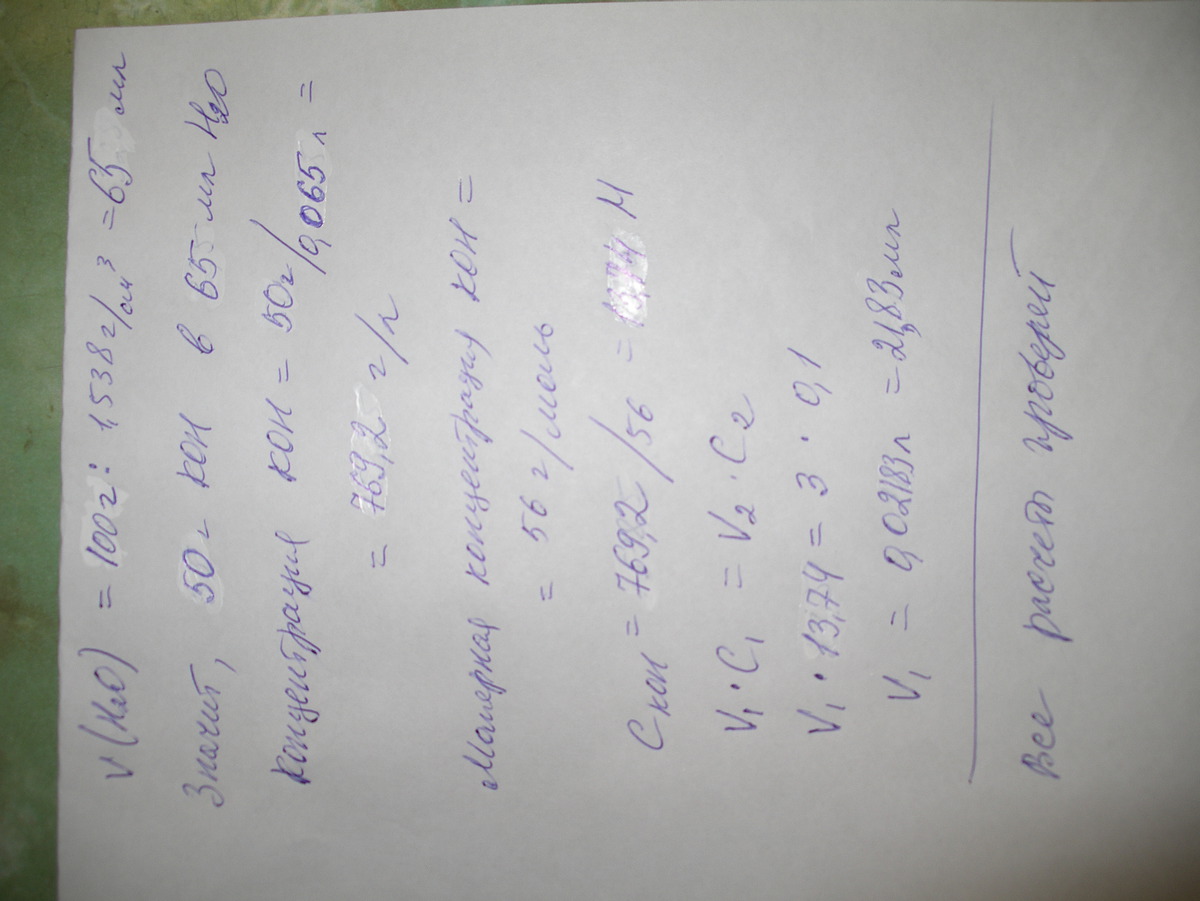 V(H₂O) = 100г : 1,538 г/см³ = 65 мл
Значит, 50г KOH в 65 мл H₂O
Концентрация KOH = 50г/0,065 л =
= 769,2 г/л
Молярная концентрация KOH =
= 56 г/моль
C KOH = 769,2/56 = 13,74 М
V₁ · C₁ = V₂ · C₂
V₁ · 13,74 = 3 · 0,1
V₁ = 0,02183 л = 21,83 мл
Все расчет проверей